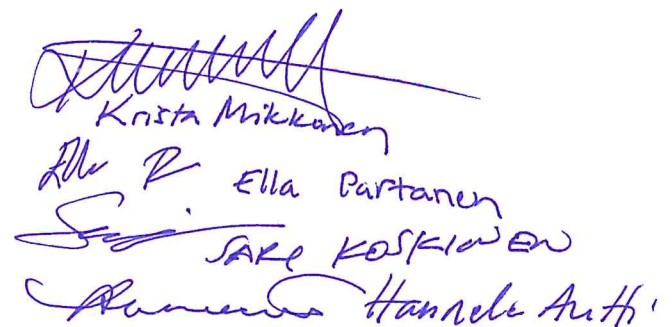 Krista Mikkonen
Ella P Ella Partanen
SARI KOSKINEN
Hannele Antti